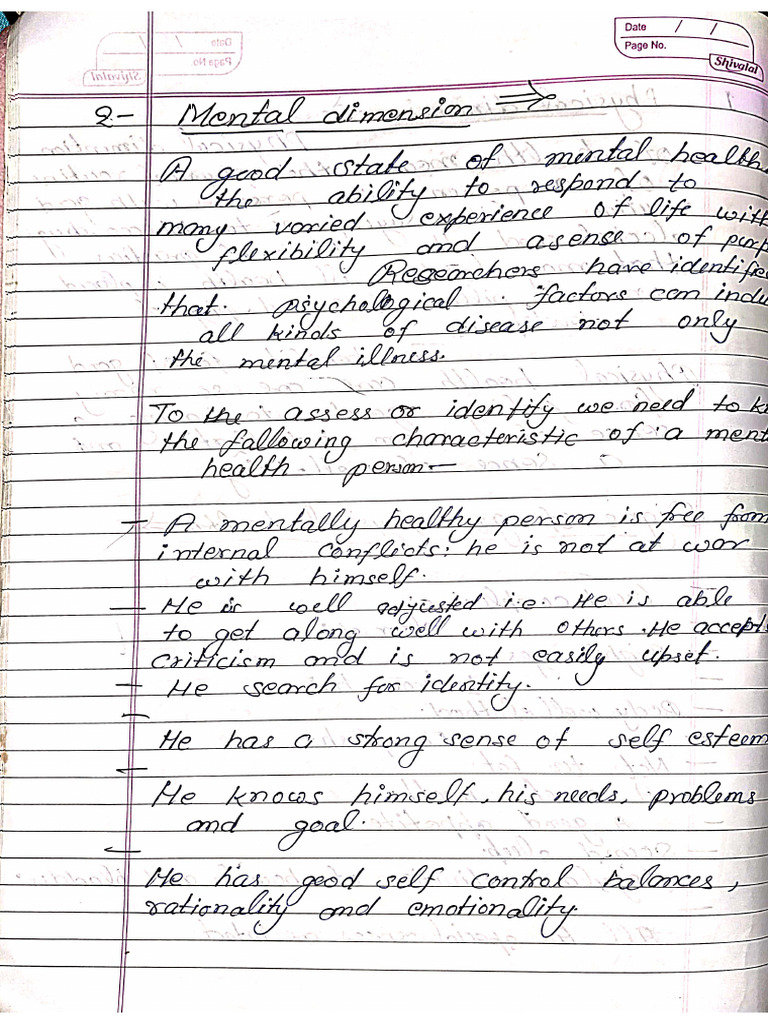 Date / /
Page No.
Shivalal
2- Mental dimension ⇒
A good state of mental health
the ability to respond to
many varied experience of life with
flexibility and a sense of purp
Researchers have identifie
that psychological factors can indu
all kinds of disease not only
the mental illness.
To the assess or identify we need to k
the fallowing characteristic of a ment
health person—
— A mentally healthy person is free from
internal conflicts; he is not at war
with himself.
— He is well adjusted i.e. He is able
to get along well with others. He accept
criticism and is not easily upset.
— He search for identity.
—
He has a strong sense of self esteem
—
He knows himself, his needs, problems
and goal.
—
He has good self control balances,
rationality and emotionality.